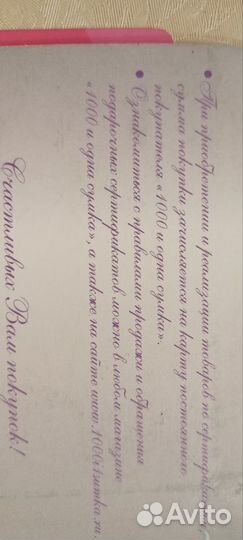 • При приобретении и реализации товаров по сертификату
сумма покупки зачисляется на карту постоянного
покупателя «1000 и одна сумка».
• Ознакомиться с правилами продажи и обращения
подарочных сертификатов можно в любом магазине
«1000 и одна сумка», а также на сайте www.1000i1sumka.ru.
Счастливых Вам покупок!
Avito